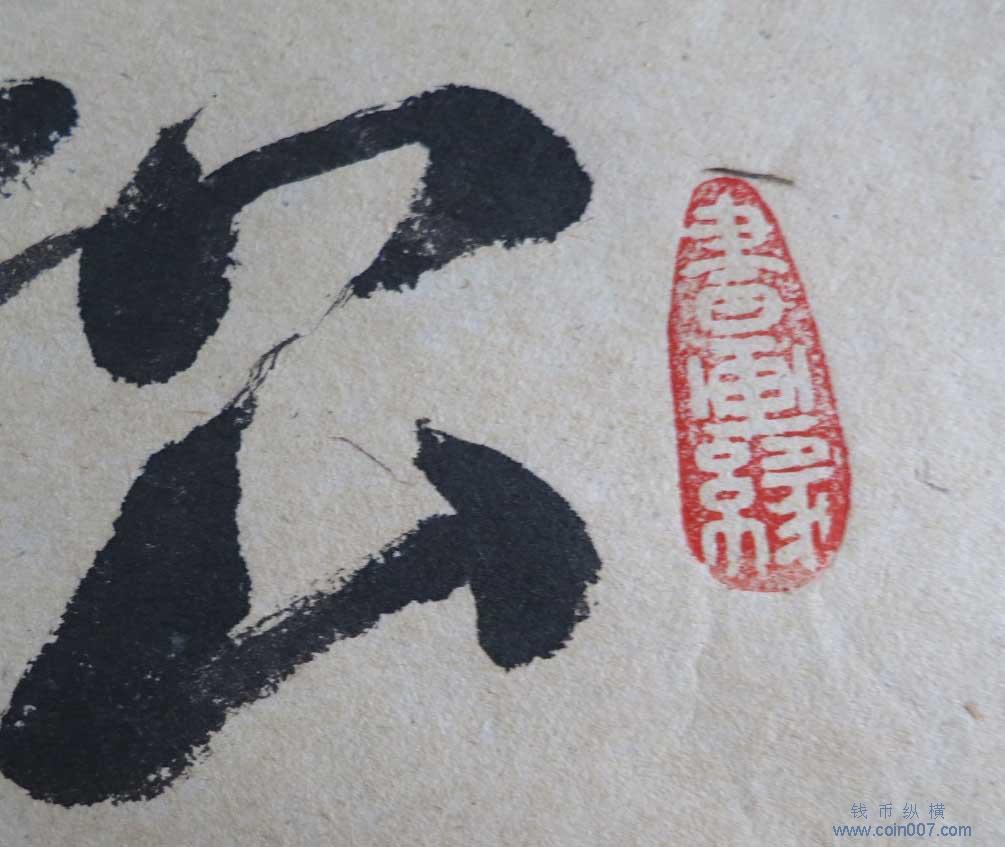 書畫緣
钱币纵横
www.coin007.com